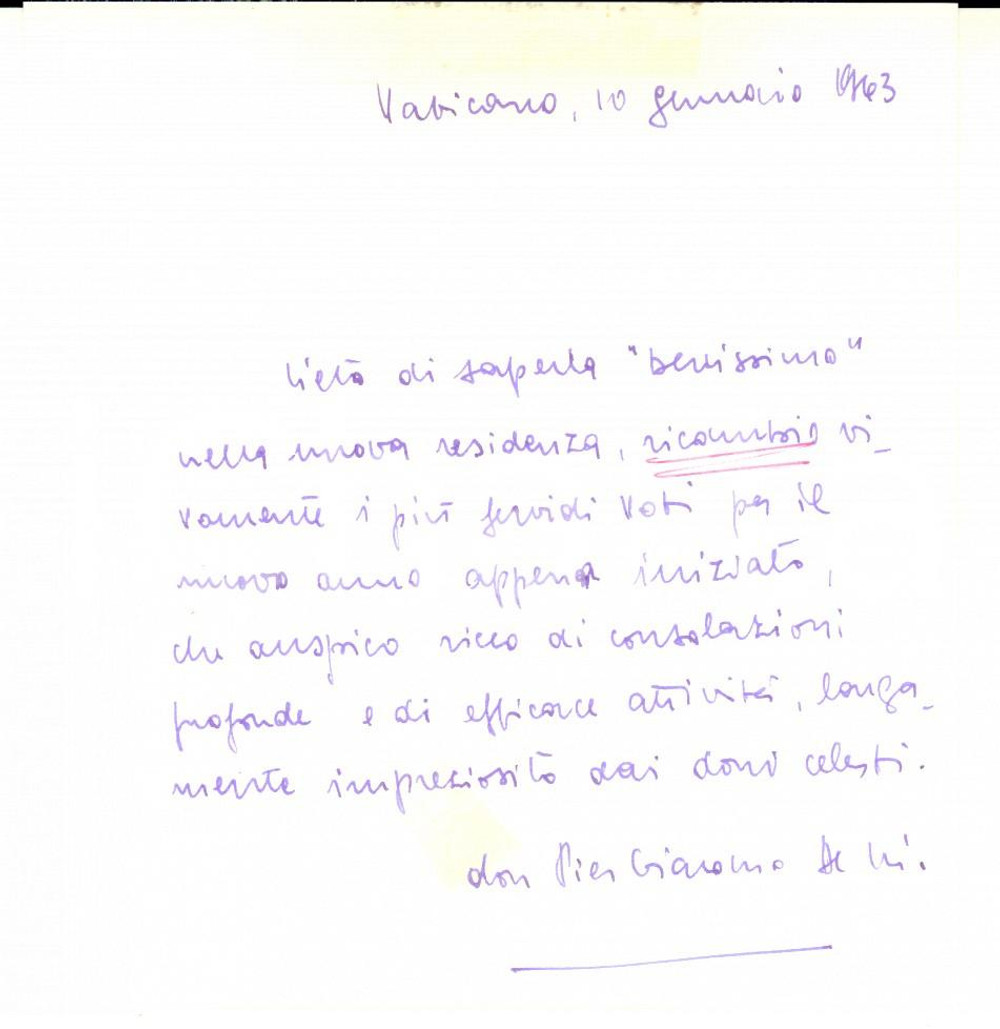 Vaticano, 10 gennaio 1963
lieto di saperla "benissimo"
nella nuova residenza, ricambio vi-
vamente i più fervidi voti per il
nuovo anno appena iniziato,
che auspico ricco di consolazioni
profonde e di efficace attività, larga-
mente impreziosito dai doni celesti.
don Pier Giacomo De